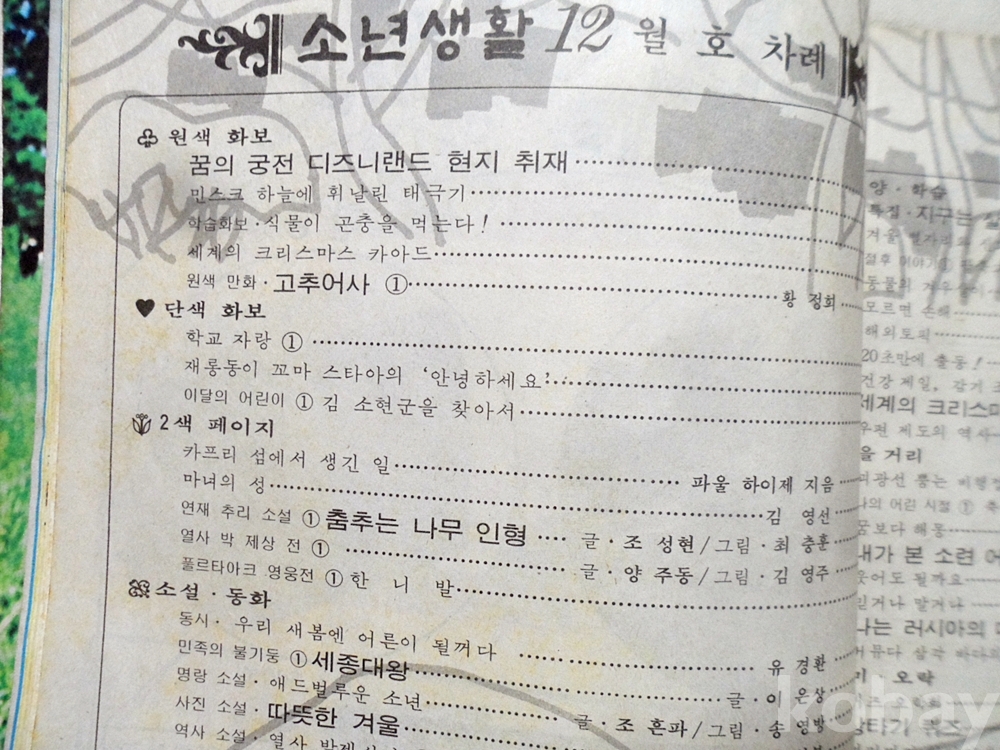 소년생활 12월호 차례
원색 화보
꿈의 궁전 디즈니랜드 현지 취재
민스크 하늘에 휘날린 태극기
학습화보·식물이 곤충을 먹는다!
세계의 크리스마스 카아드
원색 만화·고추어사 ① 황 정희
단색 화보
학교 자랑 ①
재롱동이 꼬마 스타아의 ‘안녕하세요’
이달의 어린이 ① 김 소현군을 찾아서
2색 페이지
카프리 섬에서 생긴 일 파울 하이제 지음
마녀의 성 김 영선
연재 추리 소설 ① 춤추는 나무 인형 글·조 성현/그림·최 충훈
열사 박 제상 전 ① 글·양 주동/그림·김 영주
풀르타아크 영웅전 ① 한 니 발
소설·동화
동시·우리 새봄엔 어른이 될꺼다 유 경환
민족의 불기둥 ① 세종대왕 글·이 은상
명랑 소설·애드벌루운 소년 글·조 흔파/그림·송 영방
사진 소설·따뜻한 겨울
역사 소설·열사
양·학습
특집·지구는
겨울
모르면 손해
해외토픽
20초만에 출동!
건강 제일, 감기
세계의 크리스마
우편 제도의 역사
을 거리
나의 어린 시절 ①
꿈보다 해몽
내가 본 소련
웃어도 될까요
믿거나 말거나
나는 러시아의
오락
퀴즈
kobay